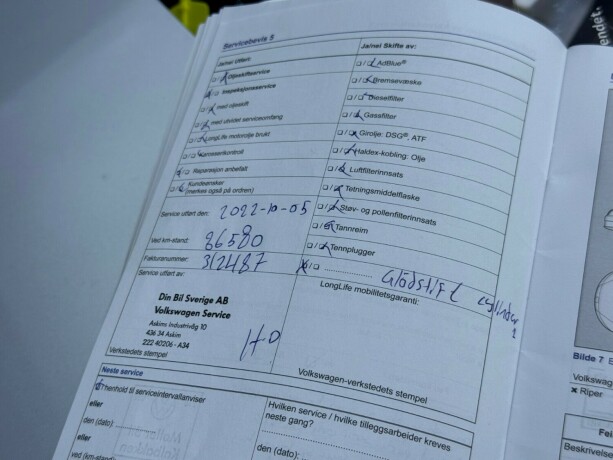 Servicebevis 5
Ja/nei Utført:
Oljeskiftservice
Inspeksjonsservice
med oljeskift
med utvidet serviceomfang
LongLife motorolje brukt
Karosserikontroll
Reparasjon anbefalt
Kundeønsker
(merkes også på ordren)
Service utført den: 2022-10-05
Ved km-stand: 86580
Fakturanummer: 312487
Service utført av:
Din Bil Sverige AB
Volkswagen Service
Askims Industriväg 10
436 34 Askim
222 40206 - A34
Verkstedets stempel
Ja/nei Skifte av:
AdBlue®
Bremsevæske
Dieselfilter
Gassfilter
Girolje: DSG®, ATF
Haldex-kobling: Olje
Luftfilterinnsats
Tetningsmiddelflaske
Støv- og pollenfilterinnsats
Tannreim
Tennplugger
Glödstift cylinder 2
LongLife mobilitetsgaranti:
Volkswagen-verkstedets stempel
Neste service
I henhold til serviceintervallanviser
eller
den (dato):
eller
ved (km-stand)
Hvilken service / hvilke tilleggsarbeider kreves
neste gang?
den (dato):
Bilde 7
Volkswag
× Riper
Fei
Beskrivelse